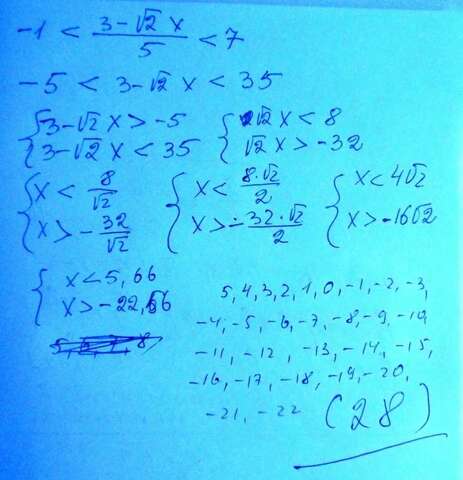 -1 < (3-√2 x)/5 < 7
-5 < 3-√2 x < 35
{3-√2 x > -5 {√2 x < 8
{3-√2 x < 35 {√2 x > -32
{x < 8/√2 {x < 8·√2/2 {x < 4√2
{x > -32/√2 {x > -32·√2/2 {x > -16√2
{x < 5,66
{x > -22,56
5, 4, 3, 2, 1, 0, -1, -2, -3,
-4, -5, -6, -7, -8, -9, -10,
-11, -12, -13, -14, -15,
-16, -17, -18, -19, -20,
-21, -22 (28)